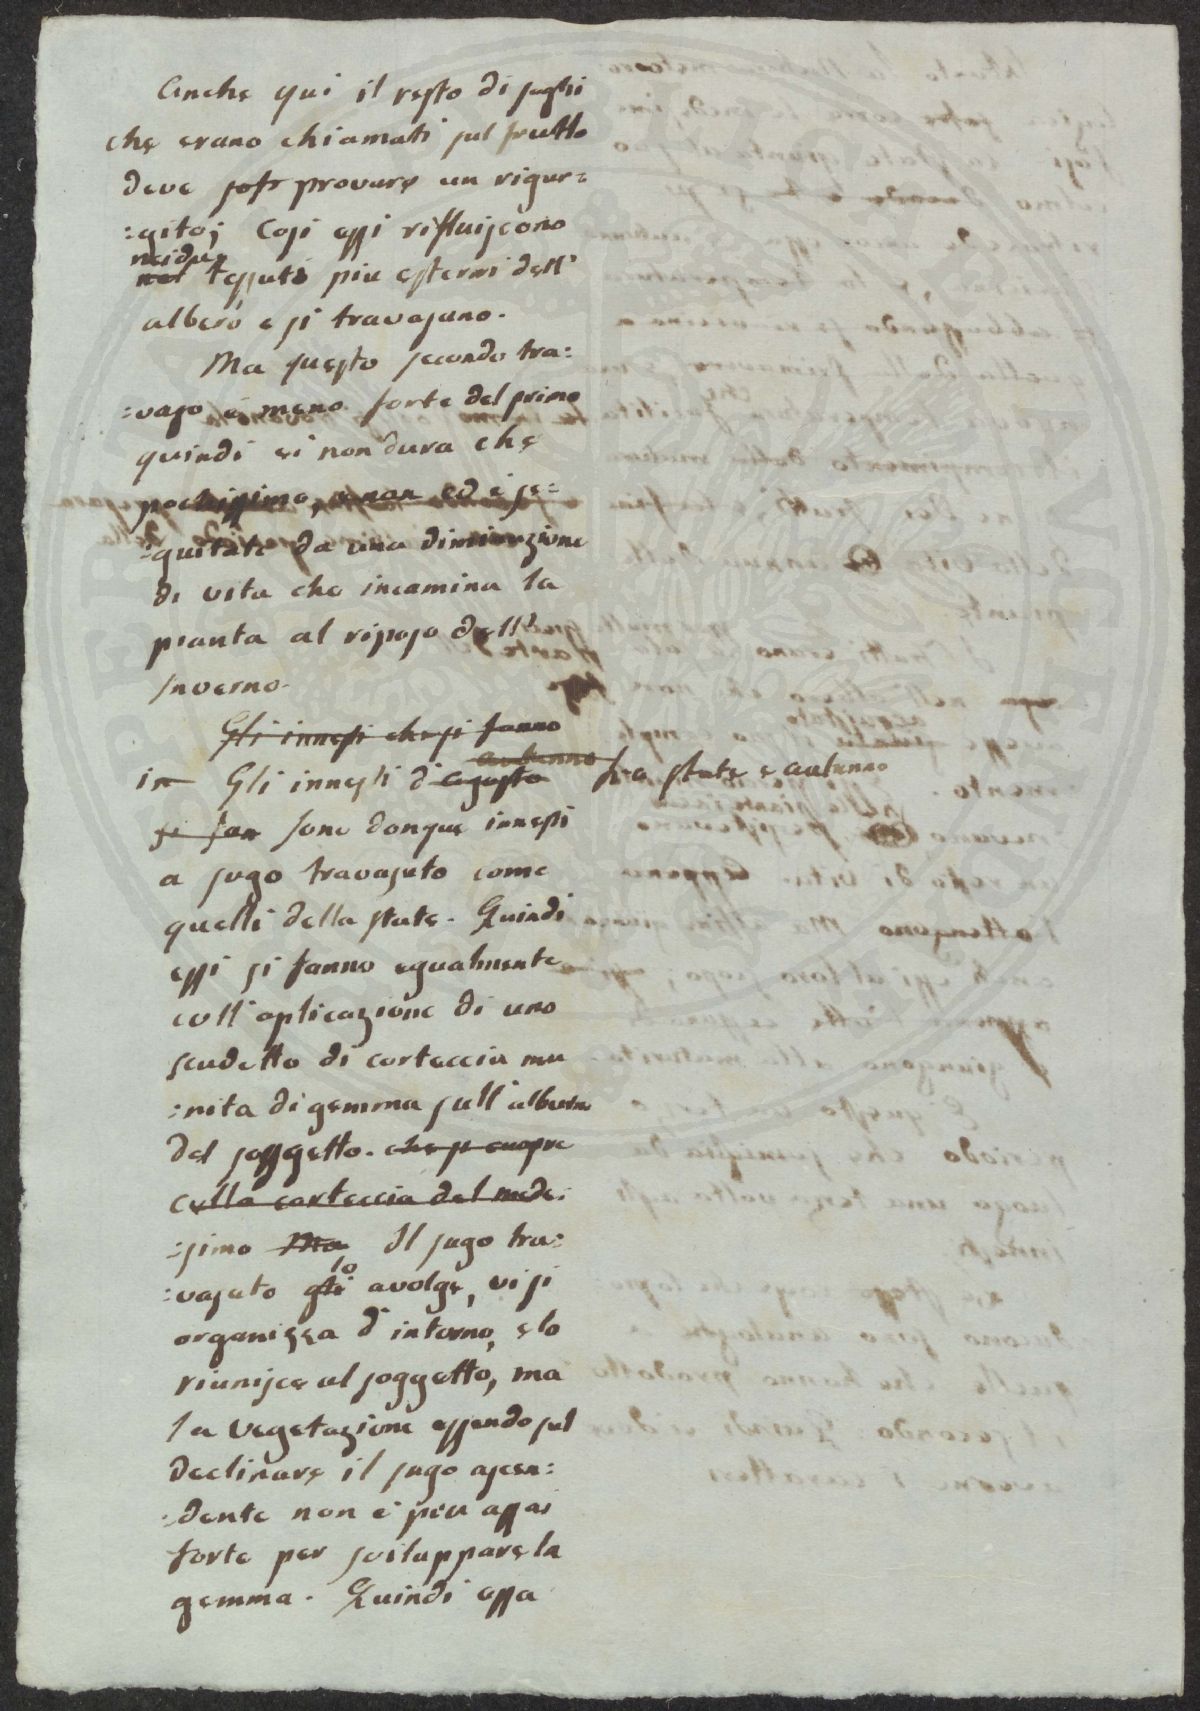 Anche qui il resto di sughi
che erano chiamati sul frutto
deve soff provare un rigur=
=gito; Così essi rifluiscono
nei due
nei tessuti più esterni dell'
albero e si travasano.
Ma questo secondo tra=
=vaso è meno forte del primo
quindi ei non dura che
pochissimo, e non ed è se=
=guitate da una diminuzione
di vita che incamina la
pianta al riposo dell'
Inverno.
Gli innesti che si fanno
autunno
in Gli innesti di agosto fra state e autunno
si fan sono donque innesti
a sugo travasato come
quelli della state. Quindi
essi si fanno egualmente
coll'aplicazione di uno
scudetto di corteccia mu
=nita di gemma sull'alburno
del soggetto. che si cuopre
colla corteccia del mede=
=simo Ma Il sugo tra=
lo
=vasato gli avolge, vi si
organizza d'intorno, e lo
riunisce al soggetto, ma
la vegetazione essendo sul
declinare il sugo ascen=
=dente non è più assai
forte per sviluppare la
gemma. Quindi essa